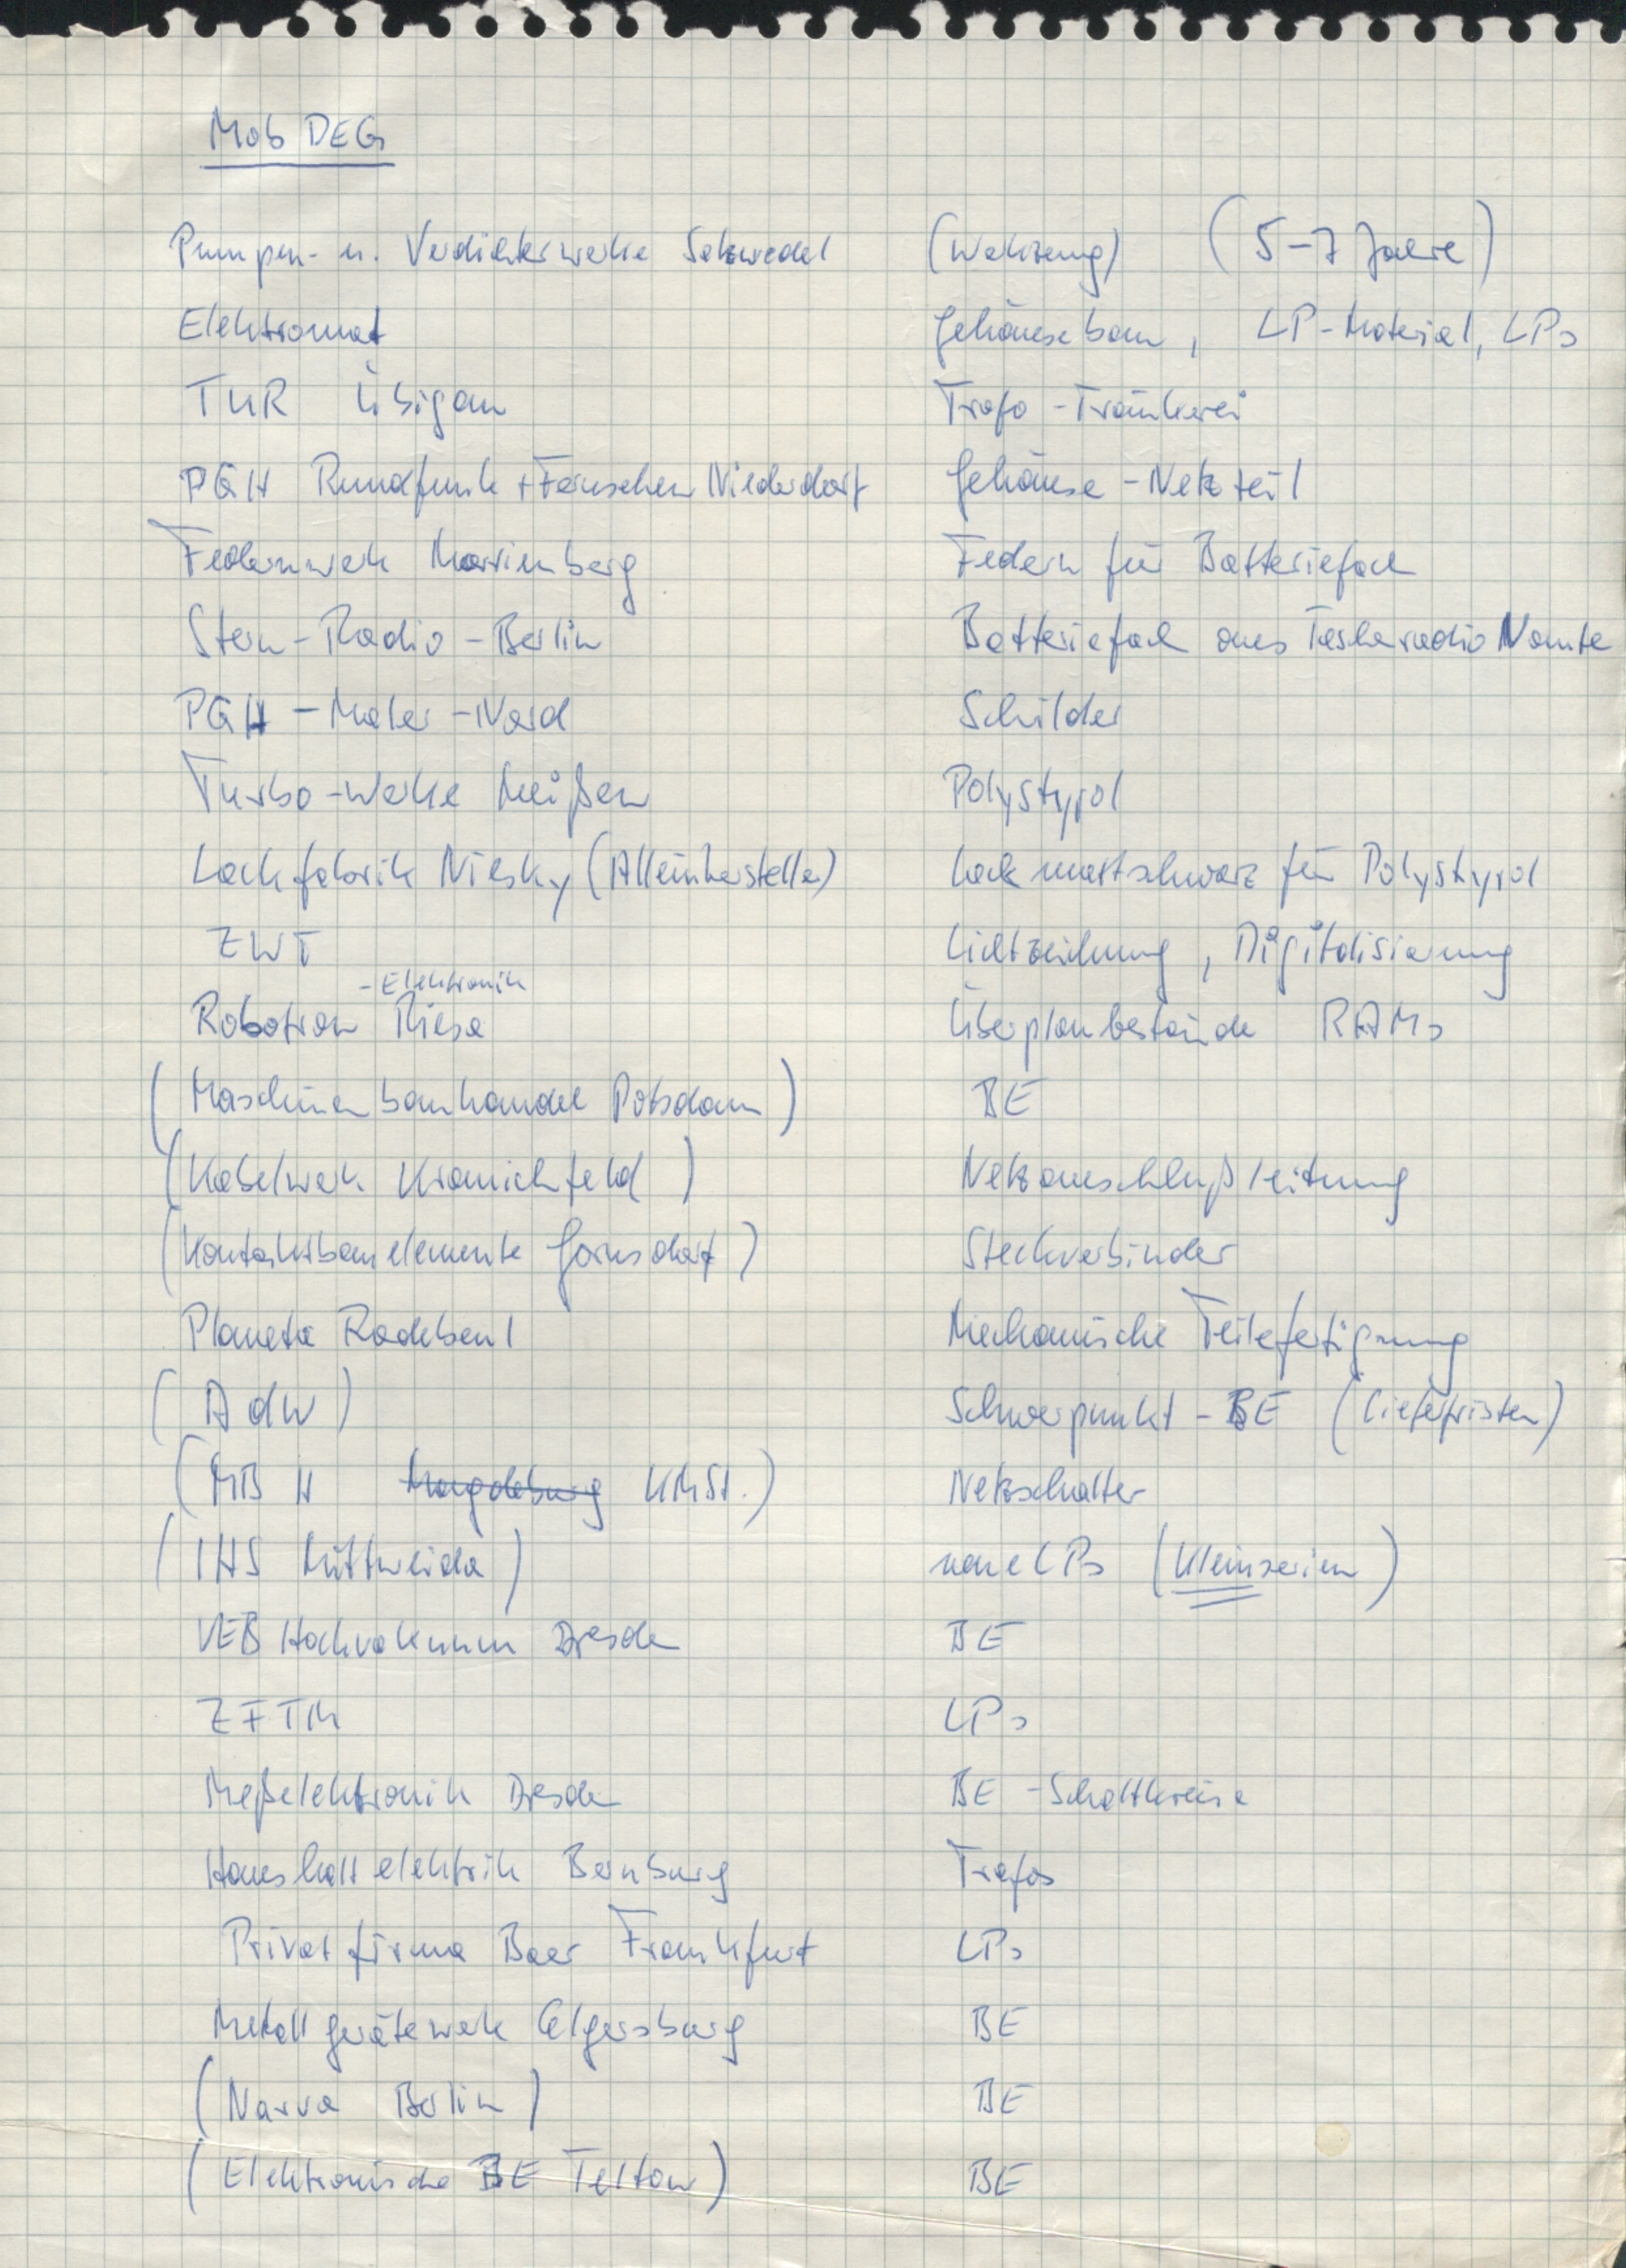 Mob DEG
Pumpen- u. Verdichterwerke Salzwedel (Werkzeug) (5-7 Jahre)
Elektromat Gehäusebau, LP-Material, LPs
TUR Übigau Trafo-Tränkerei
PGH Rundfunk + Fernsehen Niederdorf Gehäuse-Netzteil
Federnwerk Marienberg Federn für Batteriefach
Stern-Radio-Berlin Batteriefach aus Taschenradio Nante
PGH-Maler-Nord Schilder
Turbo-Werke Meißen Polystyrol
Lackfabrik Niesky (Alleinhersteller) Lack mattschwarz für Polystyrol
ZWT Lichtzeichnung, Digitalisierung
-Elektronik
Robotron Riesa Überplanbestände RAMs
(Maschinenbauhandel Potsdam) BE
(Kabelwerk Kranichfeld) Netzanschlußleitung
(Kontaktbauelemente Gornsdorf) Steckverbinder
Planeta Radebeul Mechanische Teilefertigung
(AdW) Schwerpunkt-BE (Lieferfristen)
(MBH Magdeburg KMSt.) Netzschalter
(IHS Mittweida) neue LPs (Kleinserien)
VEB Hochvakuum Dresden BE
ZFTM LPs
Meßelektronik Dresden BE-Schaltkreise
Haushaltelektrik Bernburg Trafos
Privatfirma Baer Frankfurt LPs
Metallgerätewerk Elgersburg BE
(Narva Berlin) BE
(Elektronische BE Teltow) BE